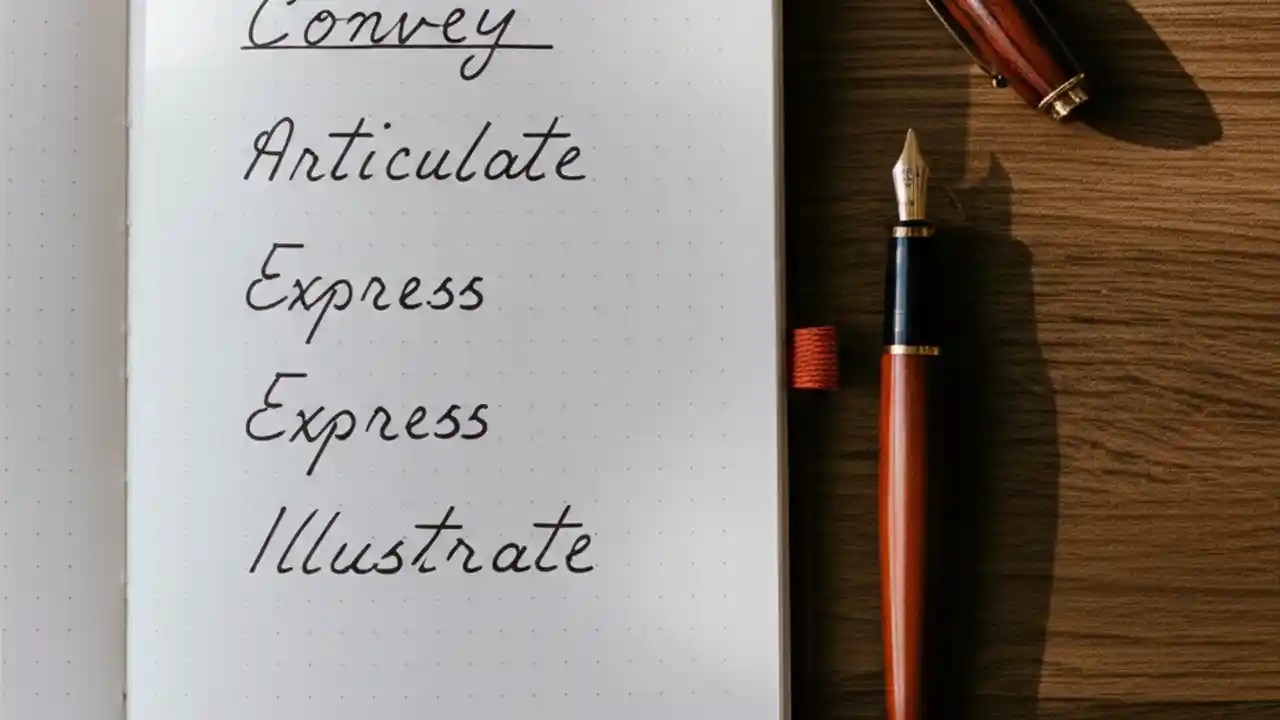 Convey
Articulate
Express
Express
Illustrate